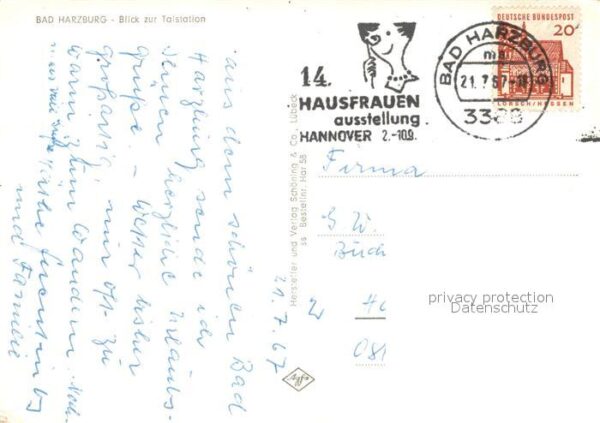 BAD HARZBURG - Blick zur Talstation
aus dem schönen Bad
Harzburg sende ich
Ihnen herzliche Urlaubs-
grüße. - Wetter bisher
großartig, nur oft zu
warm zum Wandern.
und Familie
21.7.67
Hersteller und Verlag Schöning & Co., Lübeck
ss Bestellnr. Har 58
14.
HAUSFRAUEN
ausstellung
HANNOVER 2.-10.9.
BAD HARZBURG
21.7.67
3388
DEUTSCHE BUNDESPOST
20
LORSCH/HESSEN
Firma
G. W.
Buch
privacy protection
Datenschutz